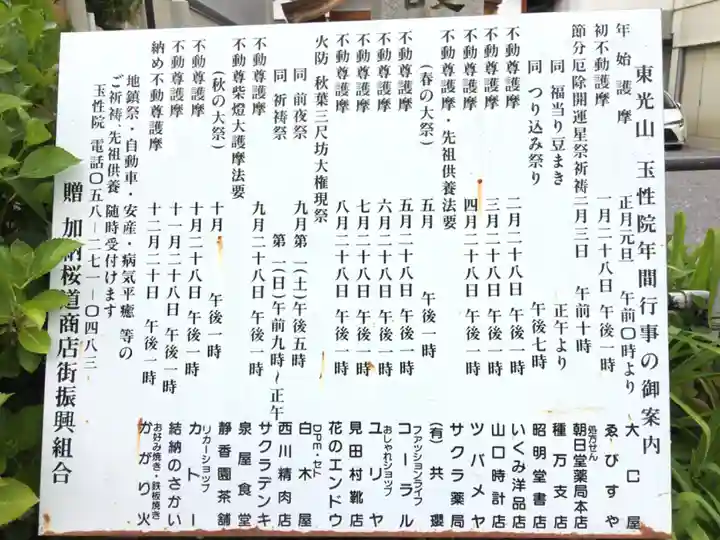 東光山 玉性院年間行事の御案内
年始護摩 正月元旦 午前〇時より
初不動護摩 一月二十八日 午後一時
節分厄除開運星祭祈祷 二月三日 午前十時
同 福当り豆まき 正午より
同 つり込み祭り 午後七時
不動尊護摩 二月二十八日 午後一時
不動尊護摩 三月二十八日 午後一時
不動尊護摩・先祖供養法要 四月二十八日 午後一時
(春の大祭) 五月 午後一時
不動尊護摩 五月二十八日 午後一時
不動尊護摩 六月二十八日 午後一時
不動尊護摩 七月二十八日 午後一時
不動尊護摩 八月二十八日 午後一時
火防 秋葉三尺坊大権現祭
同 前夜祭 九月第一(土)午後五時
同 祈祷祭 第一(日)午前九時~正午
不動尊護摩 九月二十八日 午後一時
不動尊柴燈大護摩法要
(秋の大祭) 十月 午後一時
不動尊護摩 十月二十八日 午後一時
不動尊護摩 十一月二十八日 午後一時
納め不動尊護摩 十二月二十日 午後一時
地鎮祭・自動車・安産・病気平癒 等の
ご祈祷、先祖供養 随時受付けます
玉性院 電話〇五八―二七一―〇四八三
贈 加納桜道商店街振興組合
大口屋
ゑびすや
処方せん
朝日堂薬局本店
種万支店
昭明堂書店
いくみ洋品店
山口時計店
ツバメヤ
サクラ薬局
(有)共瓔
ファッションライフ
コーラル
おしゃれショップ
ユリヤ
見田村靴店
花のエンドウ
DPE・セト
白木屋
西川精肉店
サクラデンキ
泉屋食堂
静香園茶舗
リカーショップ
カトー
結納のさかい
お好み焼き・鉄板焼き
かがり火